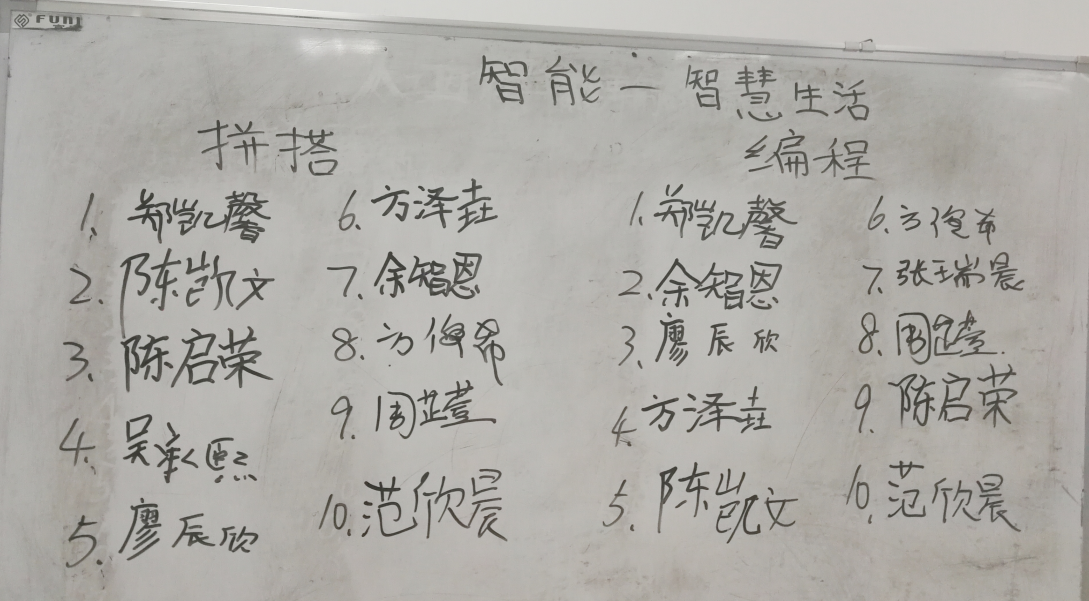 FUNJ
智能—智慧生活
拼搭
编程
1、郑凯馨
2、陈凯文
3、陈启荣
4、吴承熙
5、廖辰欣
6、方泽垚
7、余智恩
8、方俊希
9、周芷萱
10、范欣晨
1、郑凯馨
2、余智恩
3、廖辰欣
4、方泽垚
5、陈凯文
6、方俊希
7、张瑞晨
8、周芷萱
9、陈启荣
10、范欣晨